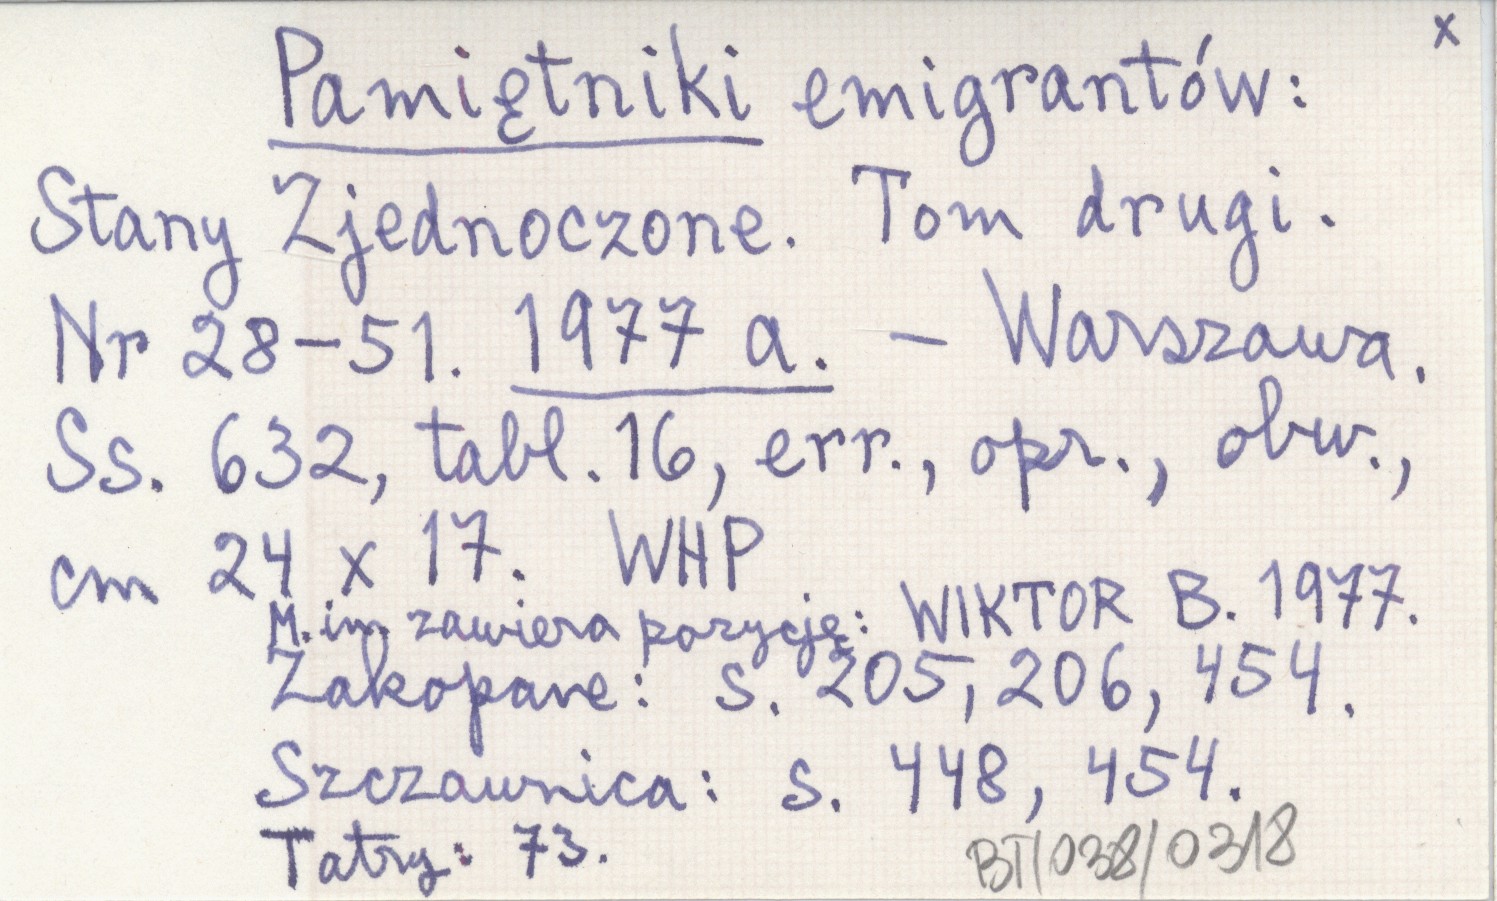 x
Pamiętniki emigrantów:
Stany Zjednoczone. Tom drugi.
Nr 28-51. 1977 a. - Warszawa.
Ss. 632, tabl. 16, err., opr., obw.,
cm 24 x 17. WHP
M. in. zawiera pozycję: WIKTOR B. 1977.
Zakopane: s. 205, 206, 454.
Szczawnica: s. 448, 454.
Tatry: 73.
BT/038/0318